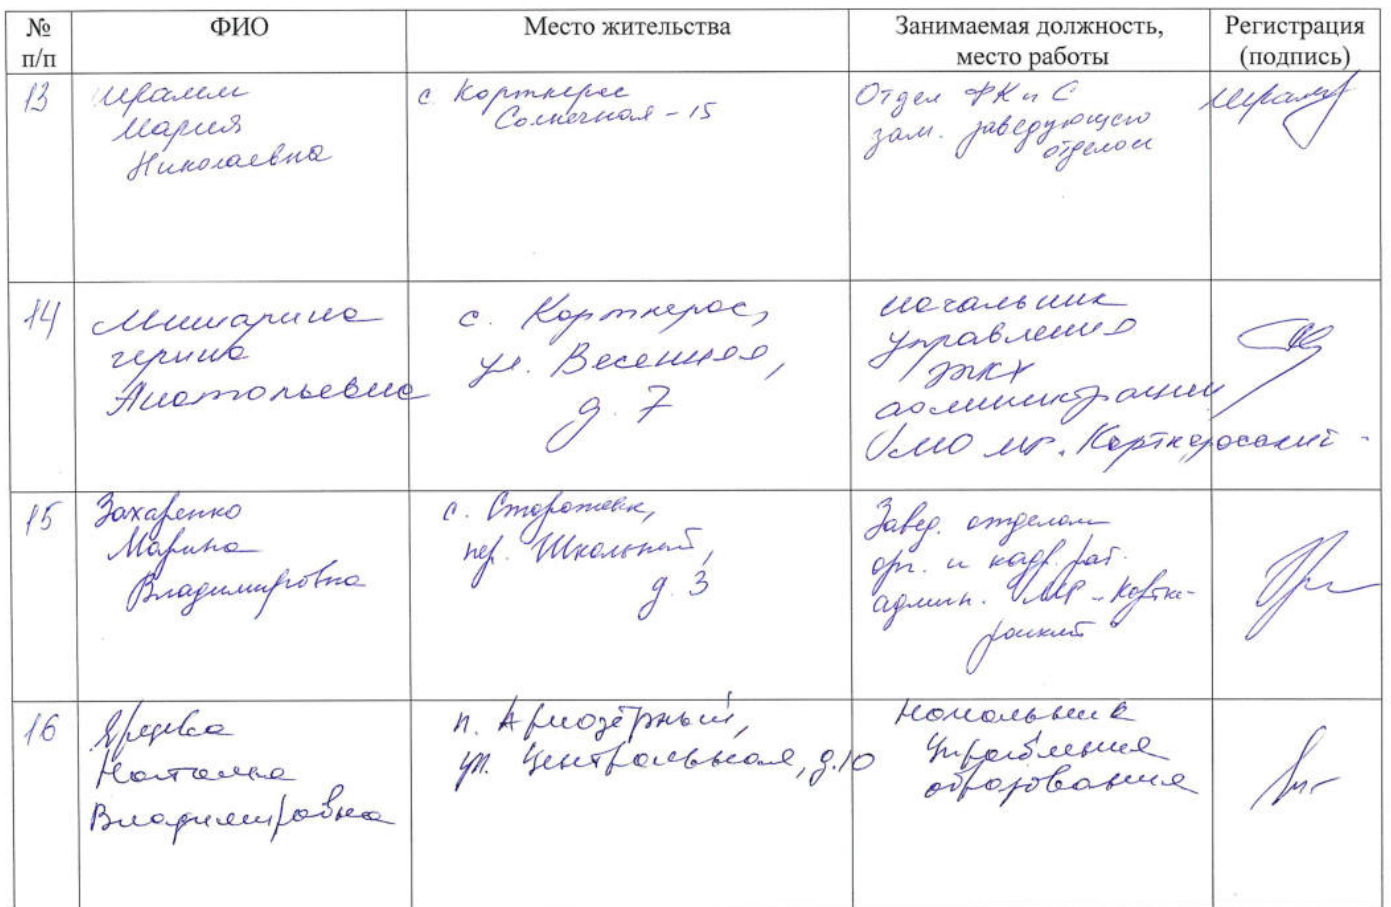 № п/п ФИО Место жительства Занимаемая должность, место работы Регистрация (подпись)
13
Шрамм
Мария
Николаевна
с. Корткерос
Солнечная - 15
Отдел ФК и С
зам. заведующего
отделом
14
Мишарина
Анатольевна
с. Корткерос,
ул. Весенняя,
д. 7
начальник
управления
ЖКХ
администрации
МО МР "Корткеросский"
15
Захаренко
Марина
Владимировна
с. Сторожевск,
пер. Школьный,
д. 3
Завед. отделом
орг. и кадр. раб.
админ. МР "Кортке-
росский"
16
Наталья
Владимировна
п. Приозёрный,
ул. Центральная, д. 10
Начальник
Управления
образования